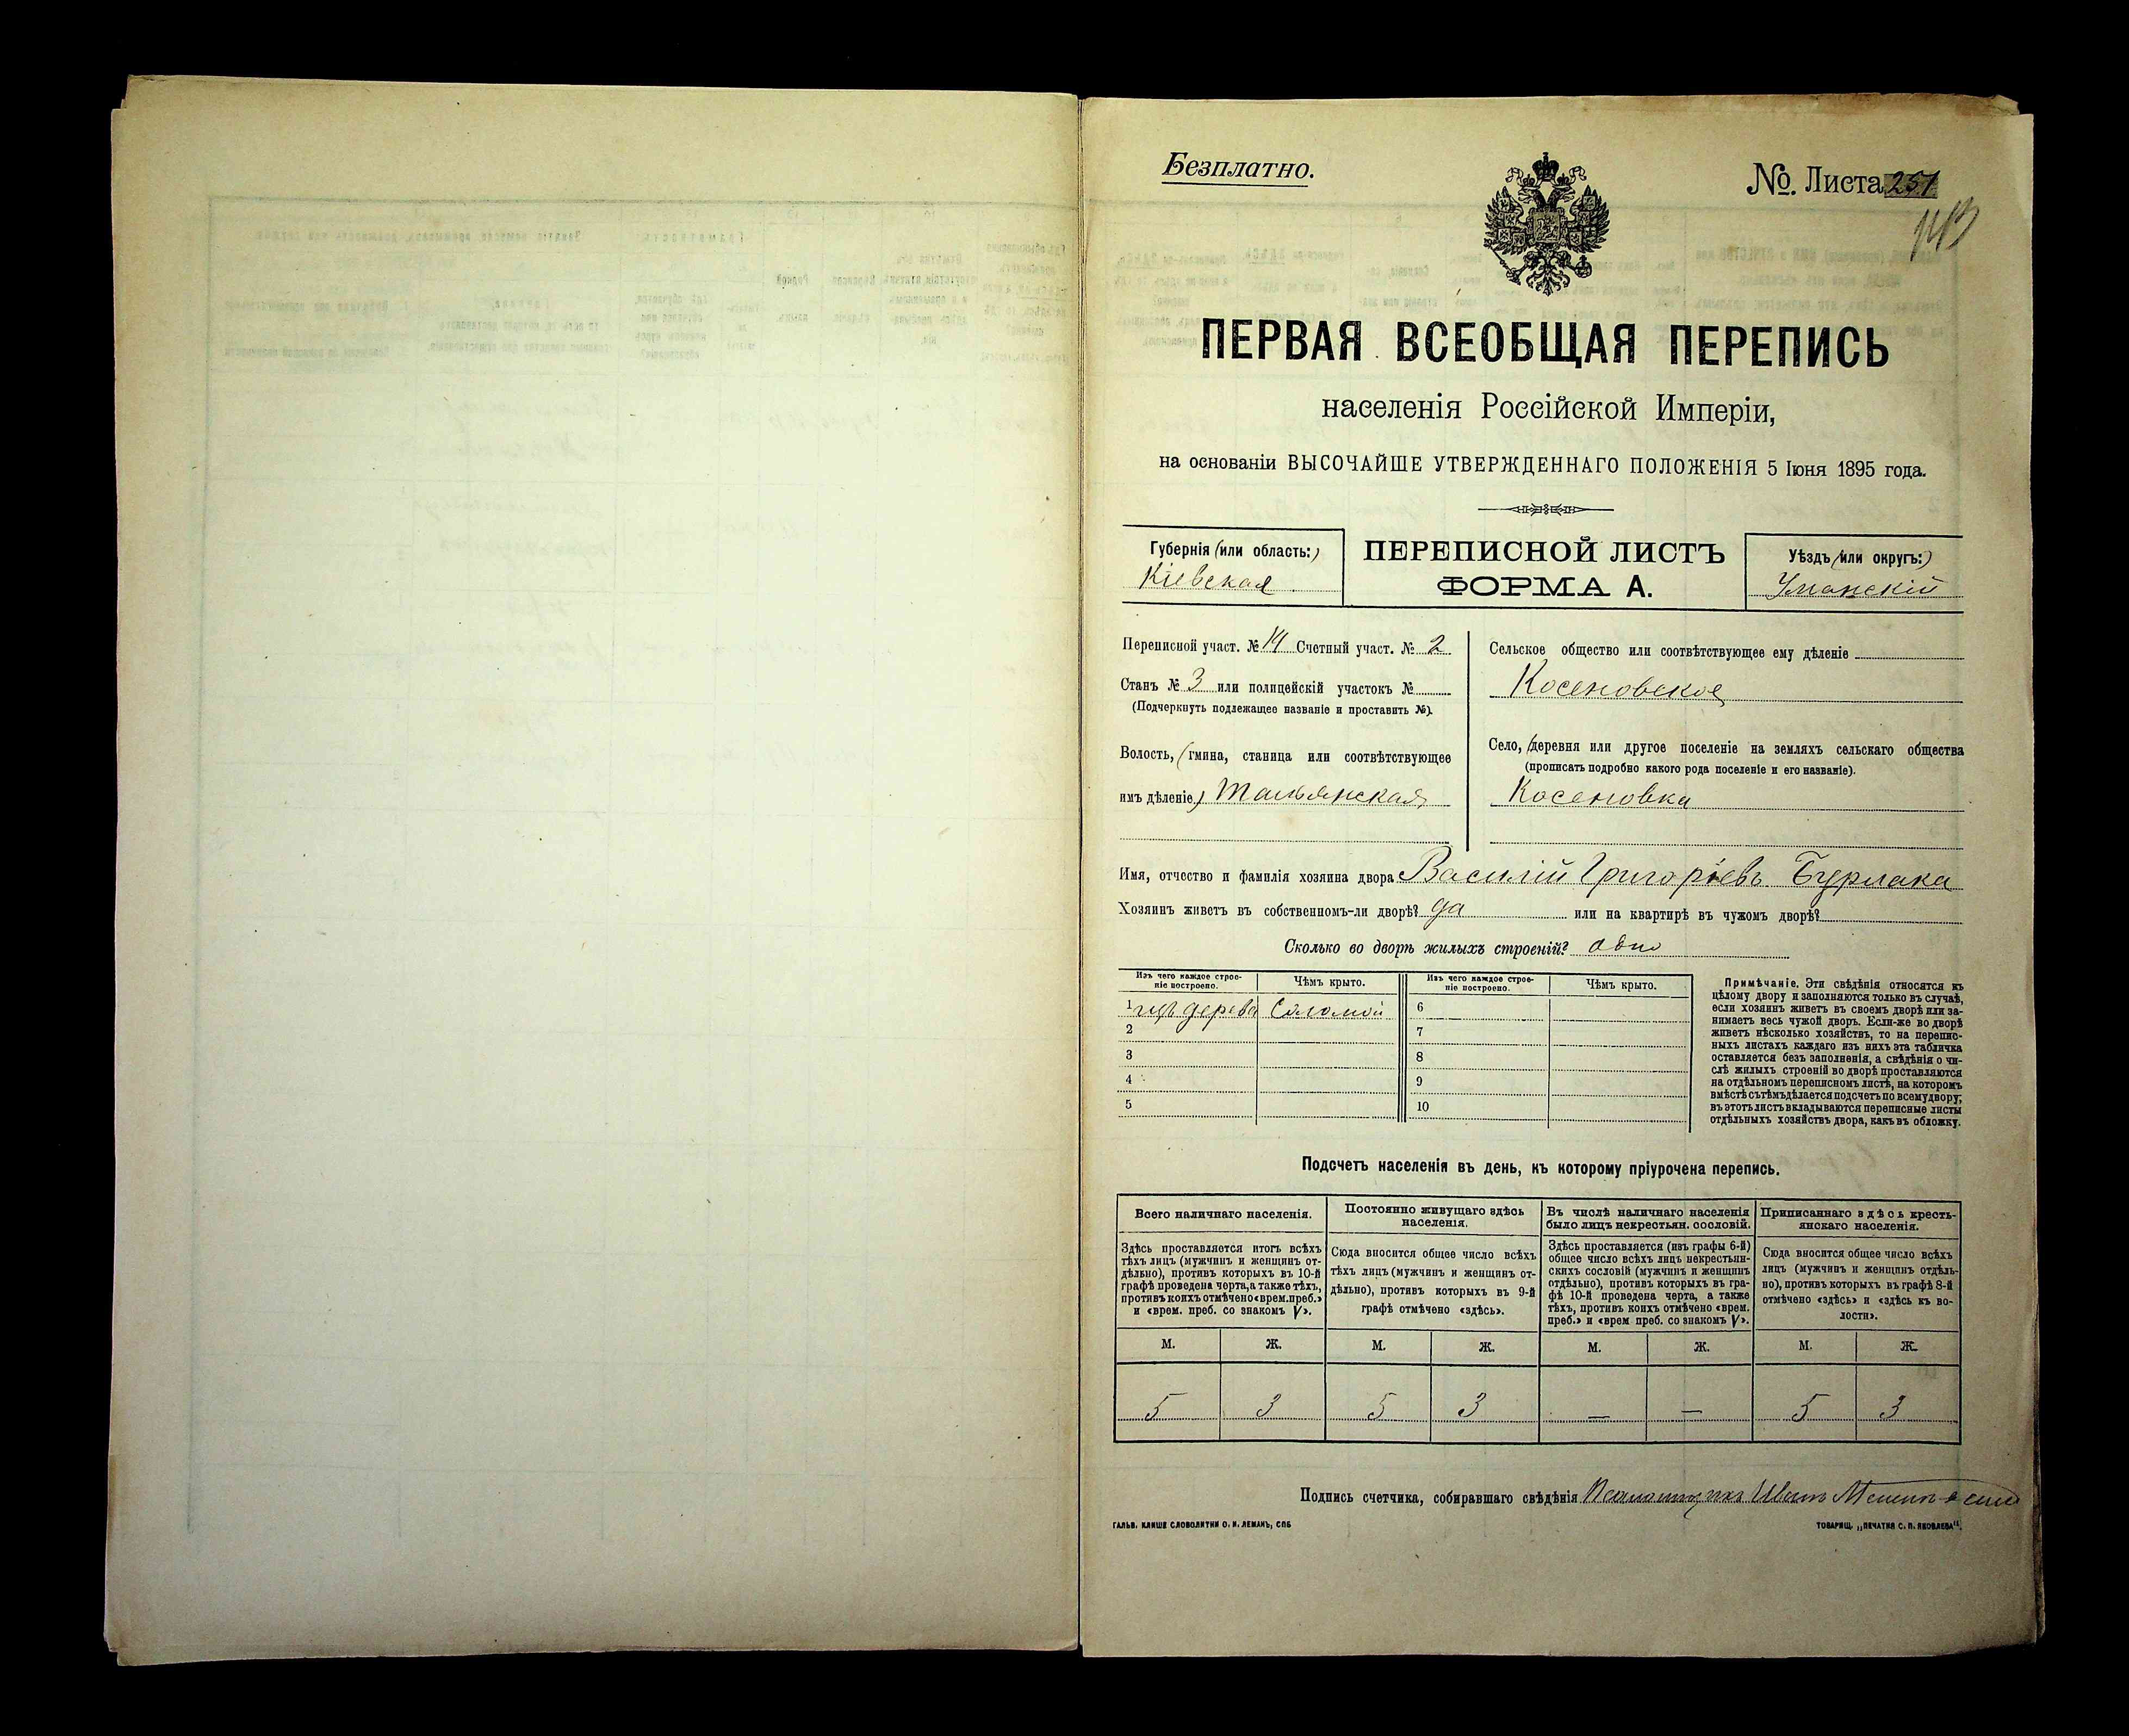 Безплатно.
№. Листа 251
ПЕРВАЯ ВСЕОБЩАЯ ПЕРЕПИСЬ
населенія Россійской Имперіи,
на основаніи ВЫСОЧАЙШЕ УТВЕРЖДЕННАГО ПОЛОЖЕНІЯ 5 Іюня 1895 года.
Губернія (или область:)
Кіевская
ПЕРЕПИСНОЙ ЛИСТЪ
ФОРМА А.
Уѣздъ (или округъ:)
Уманскій
Переписной участ. № 14 Счетный участ. № 2
Станъ № 3 или полицейскій участокъ №
(Подчеркнуть подлежащее названіе и проставить №).
Волость, (гмина, станица или соотвѣтствующее
имъ дѣленіе) Тальянская
Сельское общество или соотвѣтствующее ему дѣленіе
Косеновское
Село, (деревня или другое поселеніе на земляхъ сельскаго общества
(прописать подробно какого рода поселеніе и его названіе).
Косеновка
Имя, отчество и фамилія хозяина двора Василій Григоріевъ Бурлака
Хозяинъ живетъ въ собственномъ-ли дворѣ? да или на квартирѣ въ чужомъ дворѣ?
Сколько во дворѣ жилыхъ строеній? одно
Изъ чего каждое строе-
ніе построено.
Чѣмъ крыто.
Изъ чего каждое строе-
ніе построено.
Чѣмъ крыто.
1 изъ дерева Соломой 6
2 7
3 8
4 9
5 10
Примѣчаніе. Эти свѣдѣнія относятся къ
цѣлому двору и заполняются только въ случаѣ,
если хозяинъ живетъ въ своемъ дворѣ или за-
нимаетъ весь чужой дворъ. Если-же во дворѣ
живетъ нѣсколько хозяйствъ, то на перепис-
ныхъ листахъ каждаго изъ нихъ эта табличка
оставляется безъ заполненія, а свѣдѣнія о чи-
слѣ жилыхъ строеній во дворѣ проставляются
на отдѣльномъ переписномъ листѣ, на которомъ
вмѣстѣ съ тѣмъ дѣлается подсчетъ по всему двору;
въ этотъ листъ вкладываются переписные листы
отдѣльныхъ хозяйствъ двора, какъ въ обложку.
Подсчетъ населенія въ день, къ которому пріурочена перепись.
Всего наличнаго населенія.
Здѣсь проставляется итогъ всѣхъ
тѣхъ лицъ (мужчинъ и женщинъ от-
дѣльно), противъ которыхъ въ 10-й
графѣ проведена черта, а также тѣхъ,
противъ коихъ отмѣчено «врем. преб.»
и «врем. преб. со знакомъ V».
Постоянно живущаго здѣсь
населенія.
Сюда вносится общее число всѣхъ
тѣхъ лицъ (мужчинъ и женщинъ от-
дѣльно), противъ которыхъ въ 9-й
графѣ отмѣчено «здѣсь».
Въ числѣ наличнаго населенія
было лицъ некрестьян. сословій.
Здѣсь проставляется (изъ графы 6-й)
общее число всѣхъ лицъ некрестьян-
скихъ сословій (мужчинъ и женщинъ
отдѣльно), противъ которыхъ въ гра-
фѣ 10-й проведена черта, а также
тѣхъ, противъ коихъ отмѣчено «врем.
преб.» и «врем преб. со знакомъ V».
Приписаннаго здѣсь кресть-
янскаго населенія.
Сюда вносится общее число всѣхъ
лицъ (мужчинъ и женщинъ отдѣль-
но), противъ которыхъ въ графѣ 8-й
отмѣчено «здѣсь» и «здѣсь къ во-
лости».
М. Ж. М. Ж. М. Ж. М. Ж.
5 3 5 3 — — 5 3
Подпись счетчика, собиравшаго свѣдѣнія Псаломщикъ Иванъ
ГАЛЬВ. КЛИШЕ СЛОВОЛИТНИ О. И. ЛЕМАНЪ, СПБ
ТОВАРИЩ. „ПЕЧАТНЯ С. П. ЯКОВЛЕВА“.